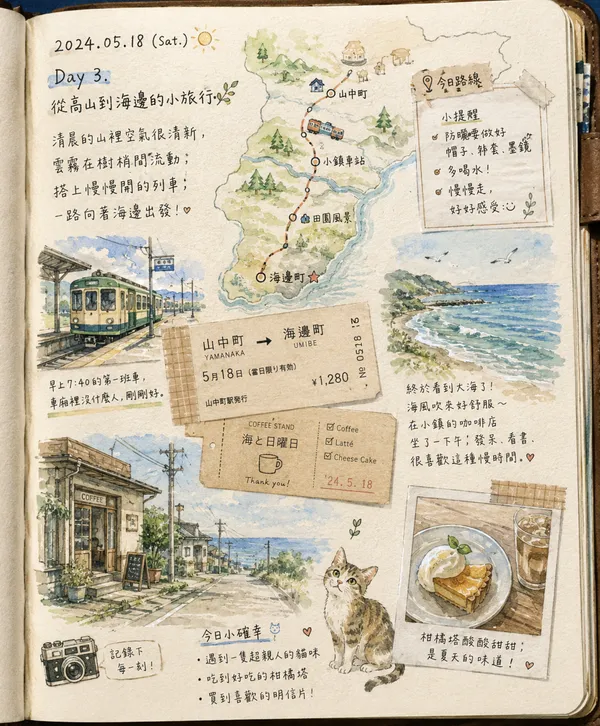 2024.05.18 (Sat.)
Day 3.
從高山到海邊的小旅行
清晨的山裡空氣很清新，
雲霧在樹梢間流動；
搭上慢慢開的列車；
一路向著海邊出發！
山中町
小鎮車站
田園風景
海邊町
今日路線
小提醒
防曬要做好
帽子、外套、墨鏡
多喝水！
慢慢走，
好好感受
早上7:40的第一班車，
車廂裡沒什麼人，剛剛好。
山中町 → 海邊町
YAMANAKA UMIBE
5月18日（當日限り有効）
¥1,280
山中町駅発行
№ 0518 12
COFFEE STAND
海と日曜日
Thank you!
Coffee
Latté
Cheese Cake
'24.5.18
終於看到大海了！
海風吹來好舒服～
在小鎮的咖啡店
坐了一下午；發呆、看書，
很喜歡這種慢時間。
COFFEE
記錄下
每一刻！
今日小確幸
・遇到一隻超親人的貓咪
・吃到好吃的柑橘塔
・買到喜歡的明信片！
柑橘塔酸酸甜甜；
是夏天的味道！